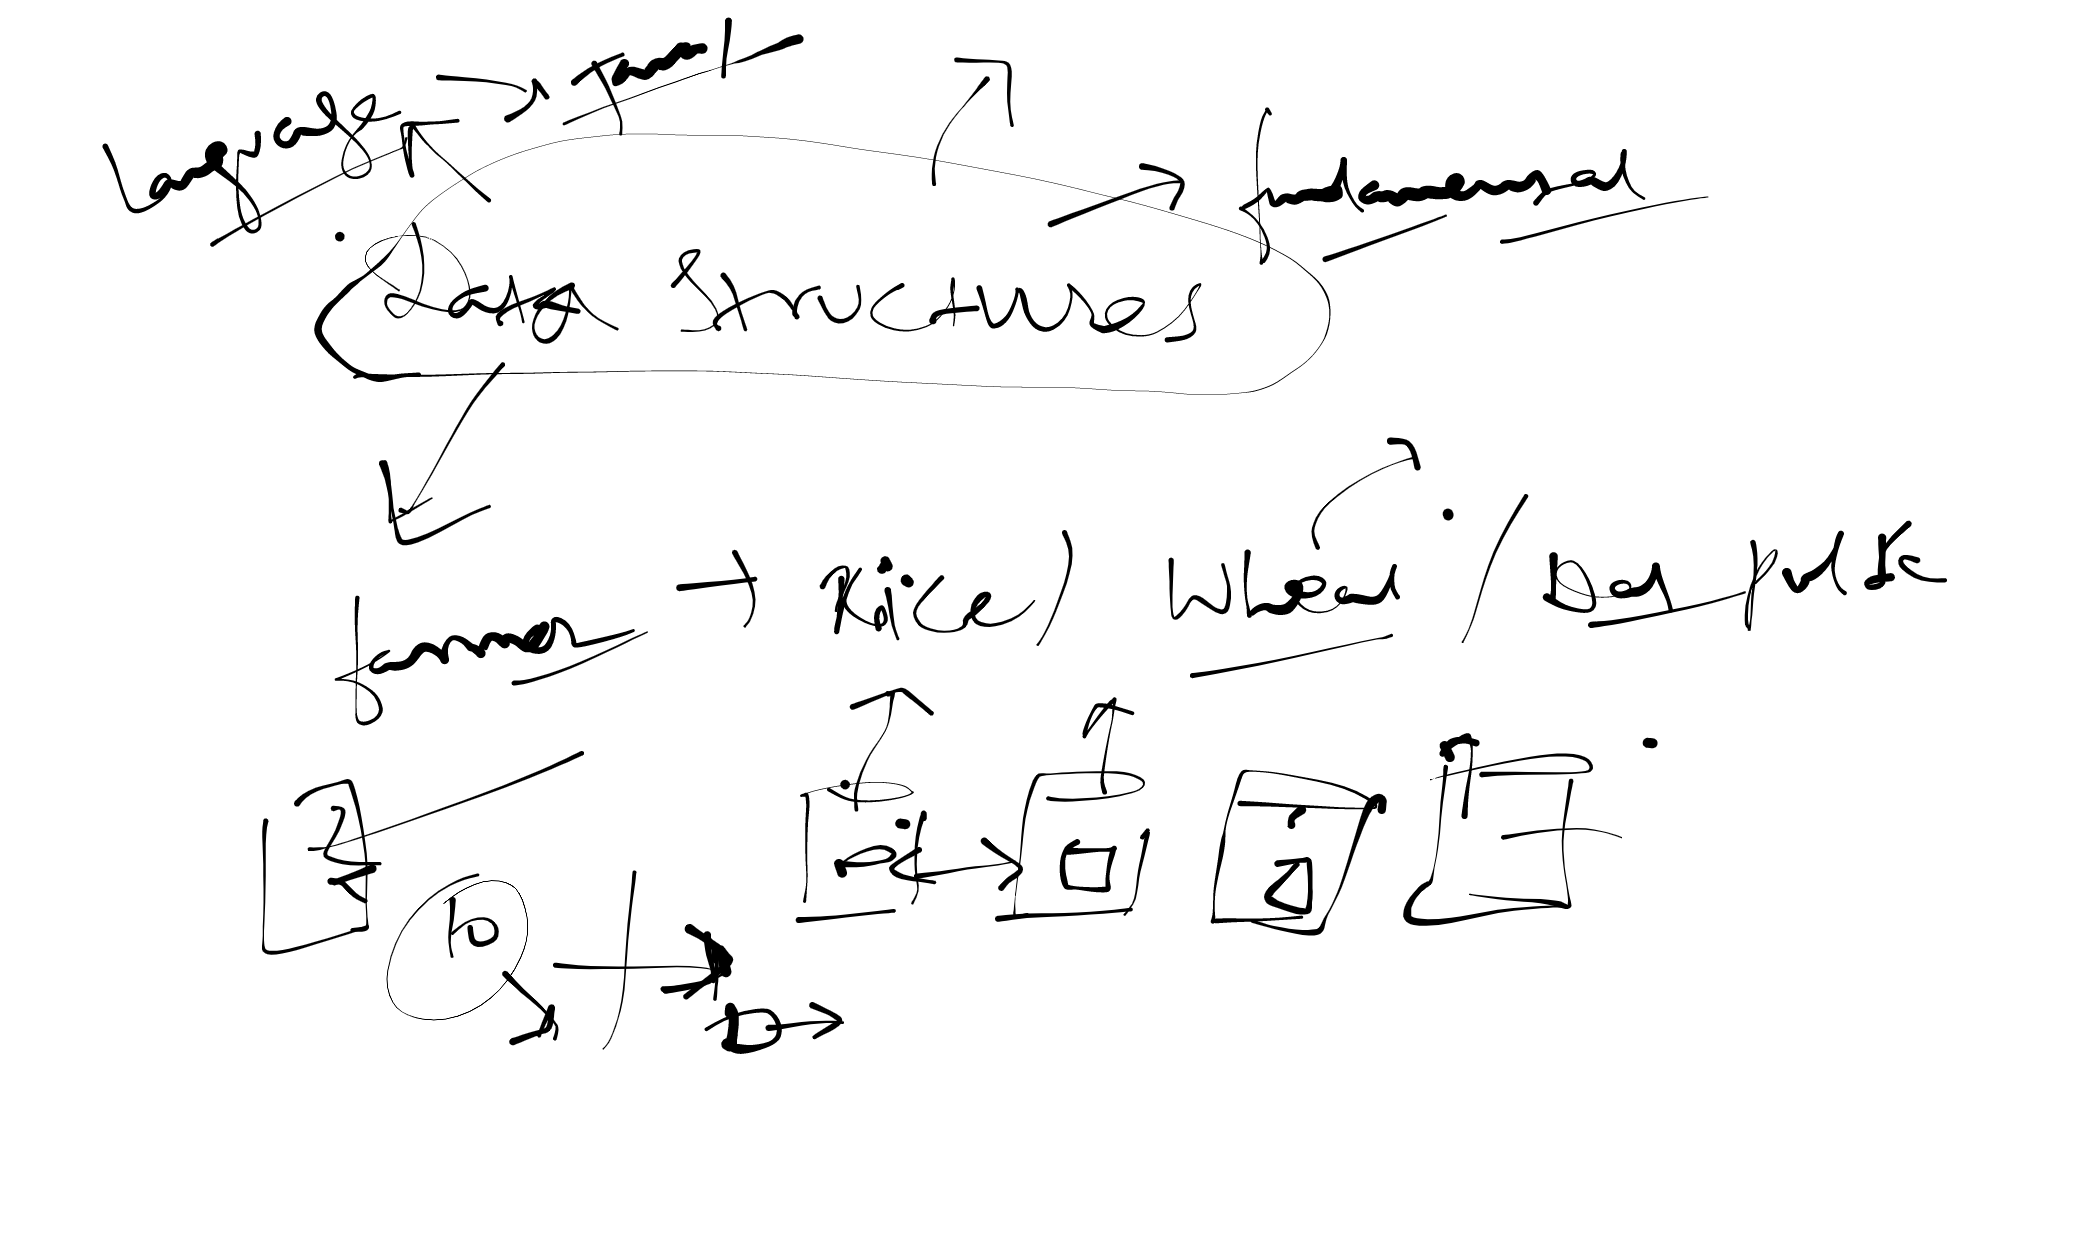 Language → Tamil
fundamental
Data Structures
farmer → Rice / Wheat / Dal pulse
10